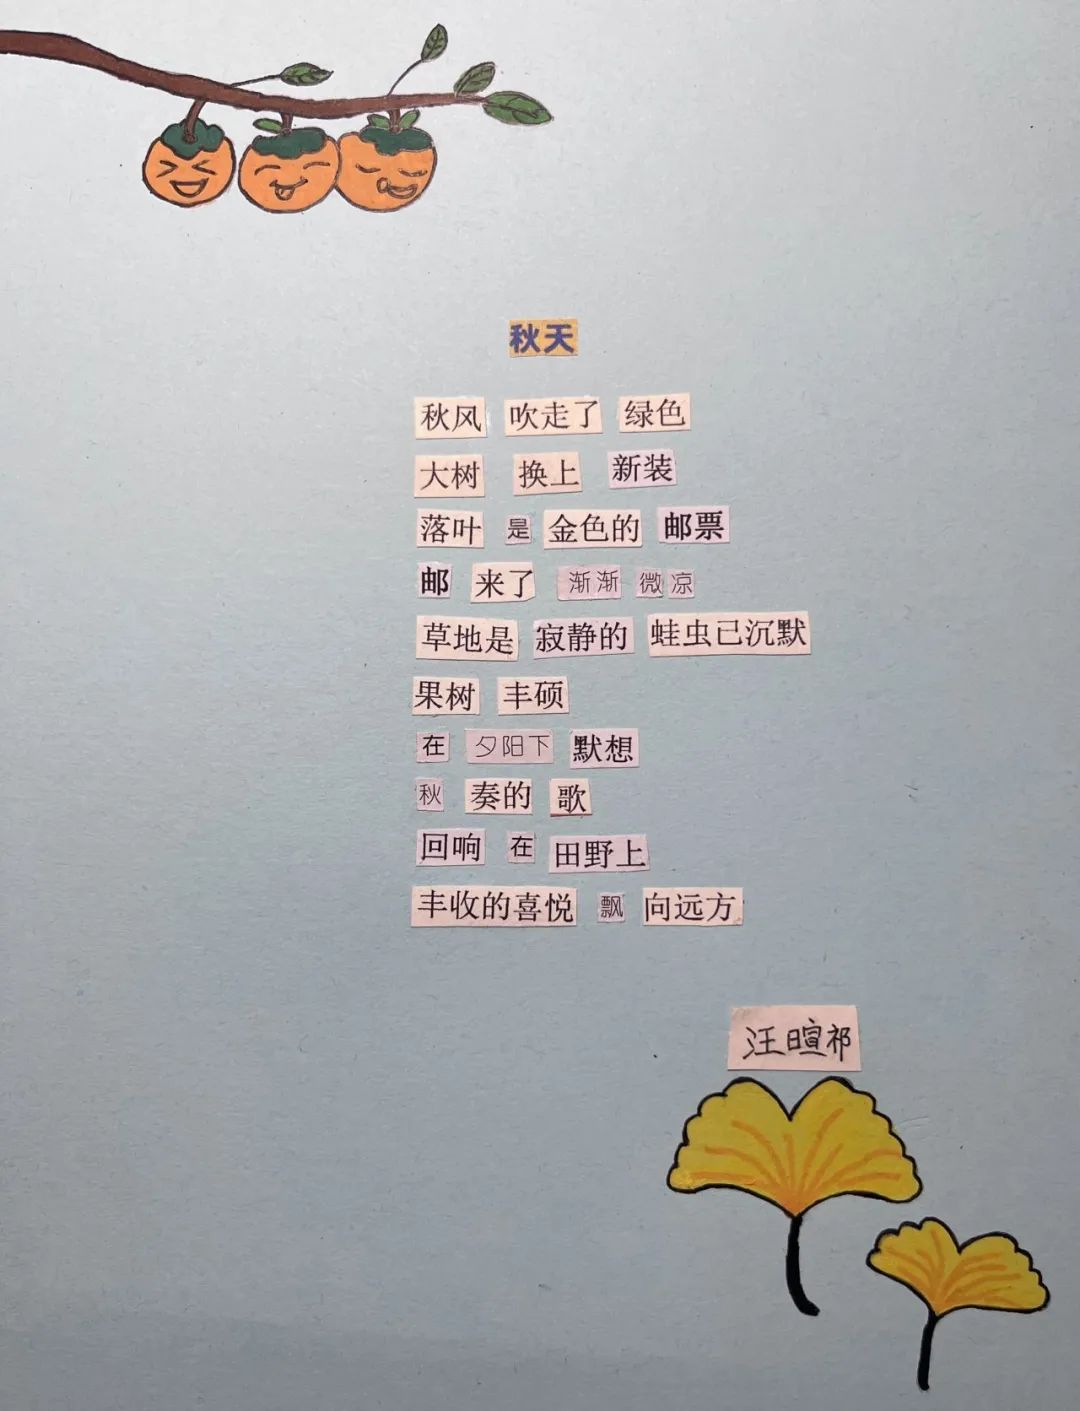 秋天
秋风 吹走了 绿色
大树 换上 新装
落叶 是 金色的 邮票
邮 来了 渐渐 微凉
草地是 寂静的 蛙虫已沉默
果树 丰硕
在 夕阳下 默想
秋 奏的 歌
回响 在 田野上
丰收的喜悦 飘 向远方
汪暄祁